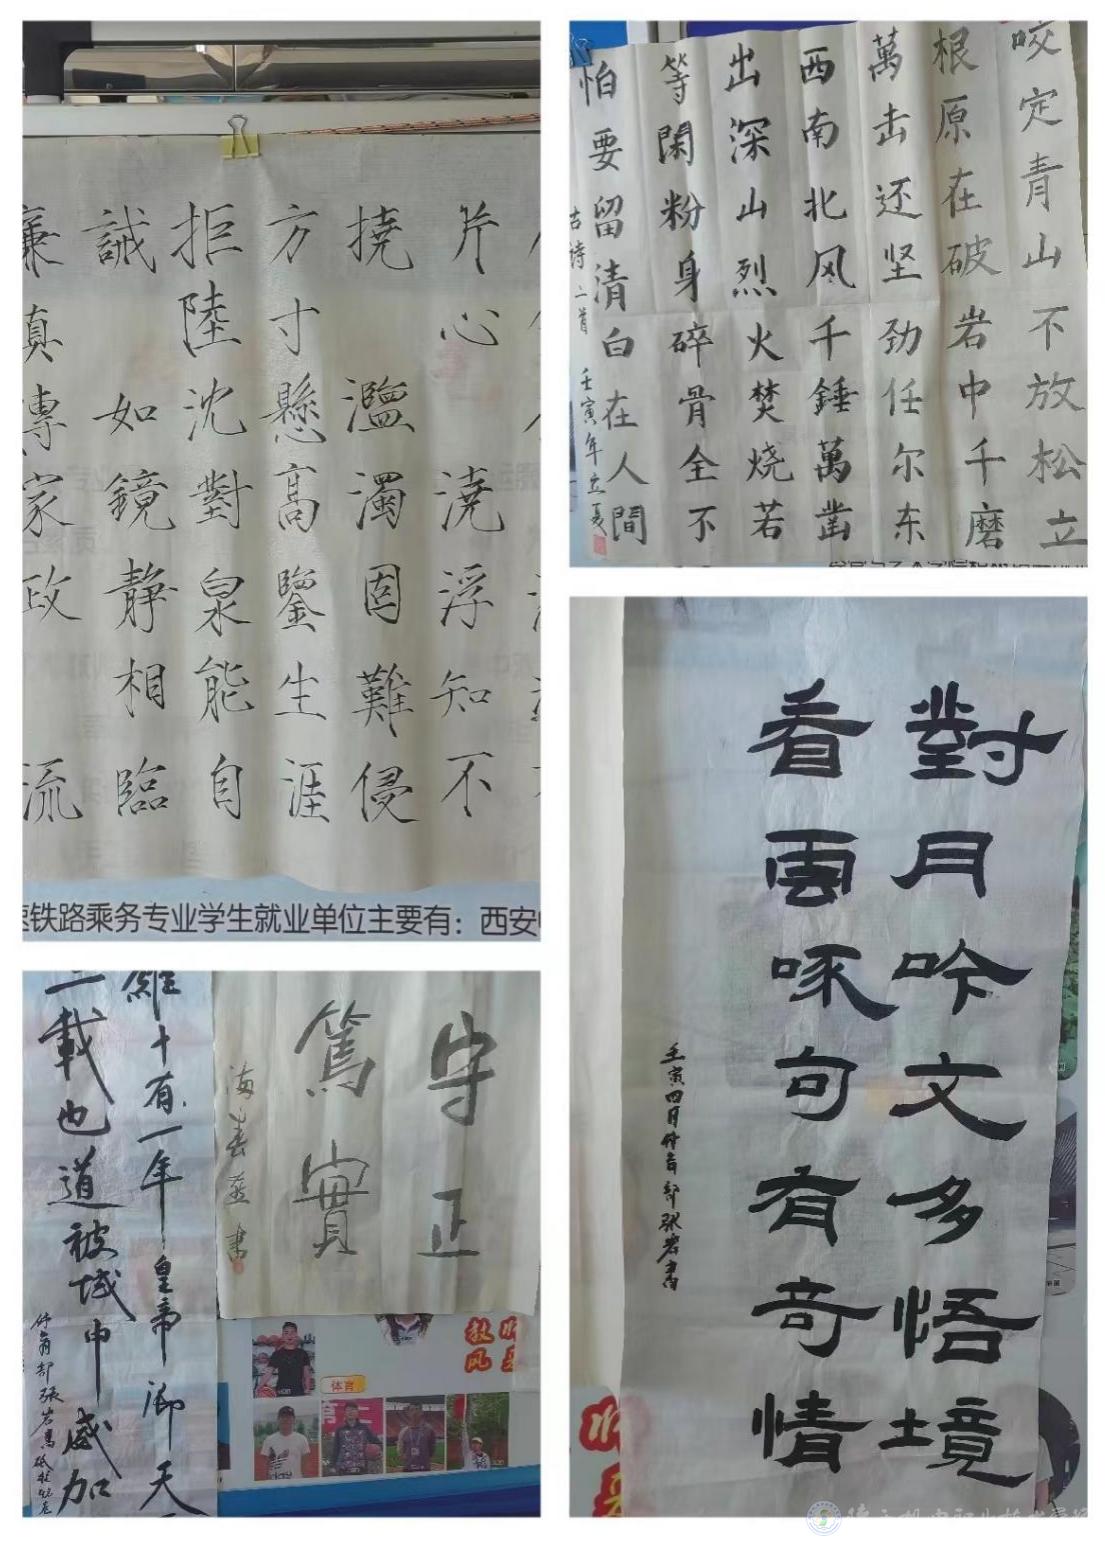 片心澆浮知不
撓濫濁固難侵
方寸懸高鑒生涯
拒陸沈對泉能自
誡如鏡靜相臨
廉慎傳家政流
速铁路乘务专业学生就业单位主要有：西安
咬定青山不放松立
根原在破岩中千磨
萬击还坚劲任尔东
西南北风千錘萬凿
出深山烈火焚烧若
等閑粉身碎骨全不
怕要留清白在人間
古诗二首 壬寅年立夏
守正
篤實
書
維十有一年皇帝御天
載也道被域中威加
体育部張岩
教风
体育
對月吟文多悟境
看雲啄句有奇情
壬寅四月体育部张岩書